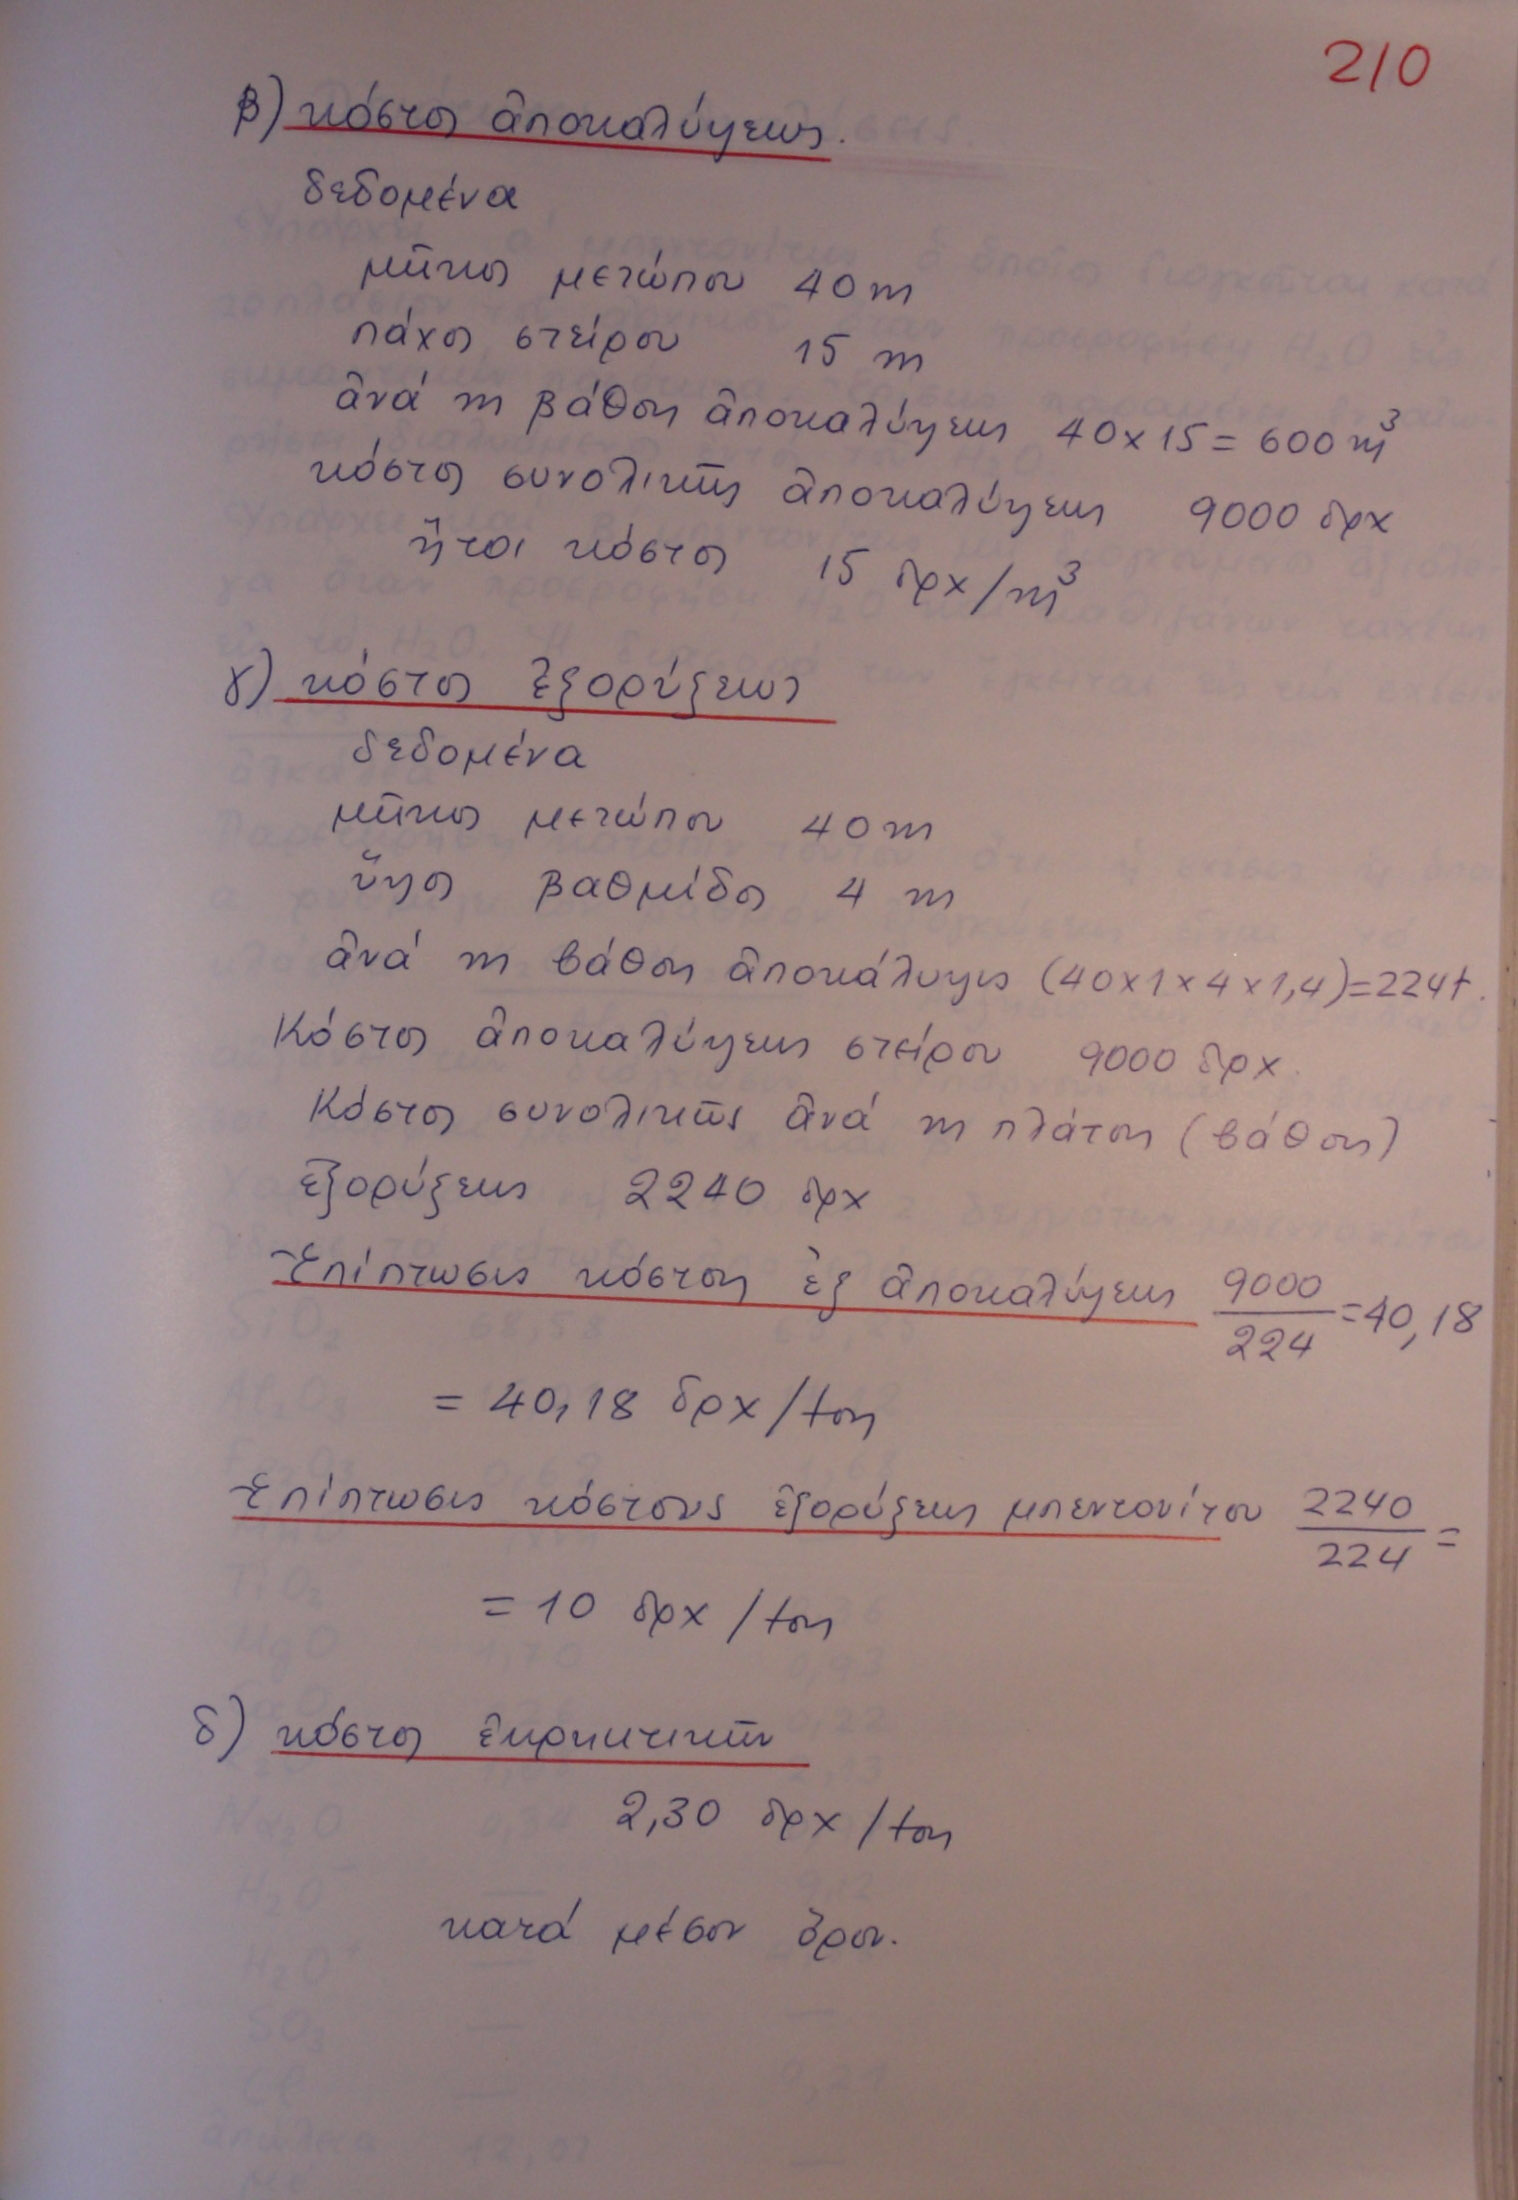 210
β) κόστος ἀποκαλύψεως.
δεδομένα
μῆκος μετώπου 40 m
πάχος στείρου 15 m
ἀνά m βάθους ἀποκαλύψεως 40 x 15 = 600 m³
κόστος συνολικῆς ἀποκαλύψεως 9000 δρχ
ἤτοι κόστος 15 δρχ/m³
γ) κόστος ἐξορύξεως
δεδομένα
μῆκος μετώπου 40 m
ὕψος βαθμίδος 4 m
ἀνά m βάθους ἀποκάλυψις (40 x 1 x 4 x 1,4) = 224 t.
Κόστος ἀποκαλύψεως στείρου 9000 δρχ.
Κόστος συνολικῆς ἀνά m πλάτους (βάθους)
ἐξορύξεως 2240 δρχ
Ἐπίπτωσις κόστους ἐξ ἀποκαλύψεως 9000/224 = 40,18
= 40,18 δρχ/τον
Ἐπίπτωσις κόστους ἐξορύξεως μπεντονίτου 2240/224 =
= 10 δρχ/τον
δ) κόστος ἐκρηκτικῶν
2,30 δρχ/τον
κατά μέσον ὅρον.